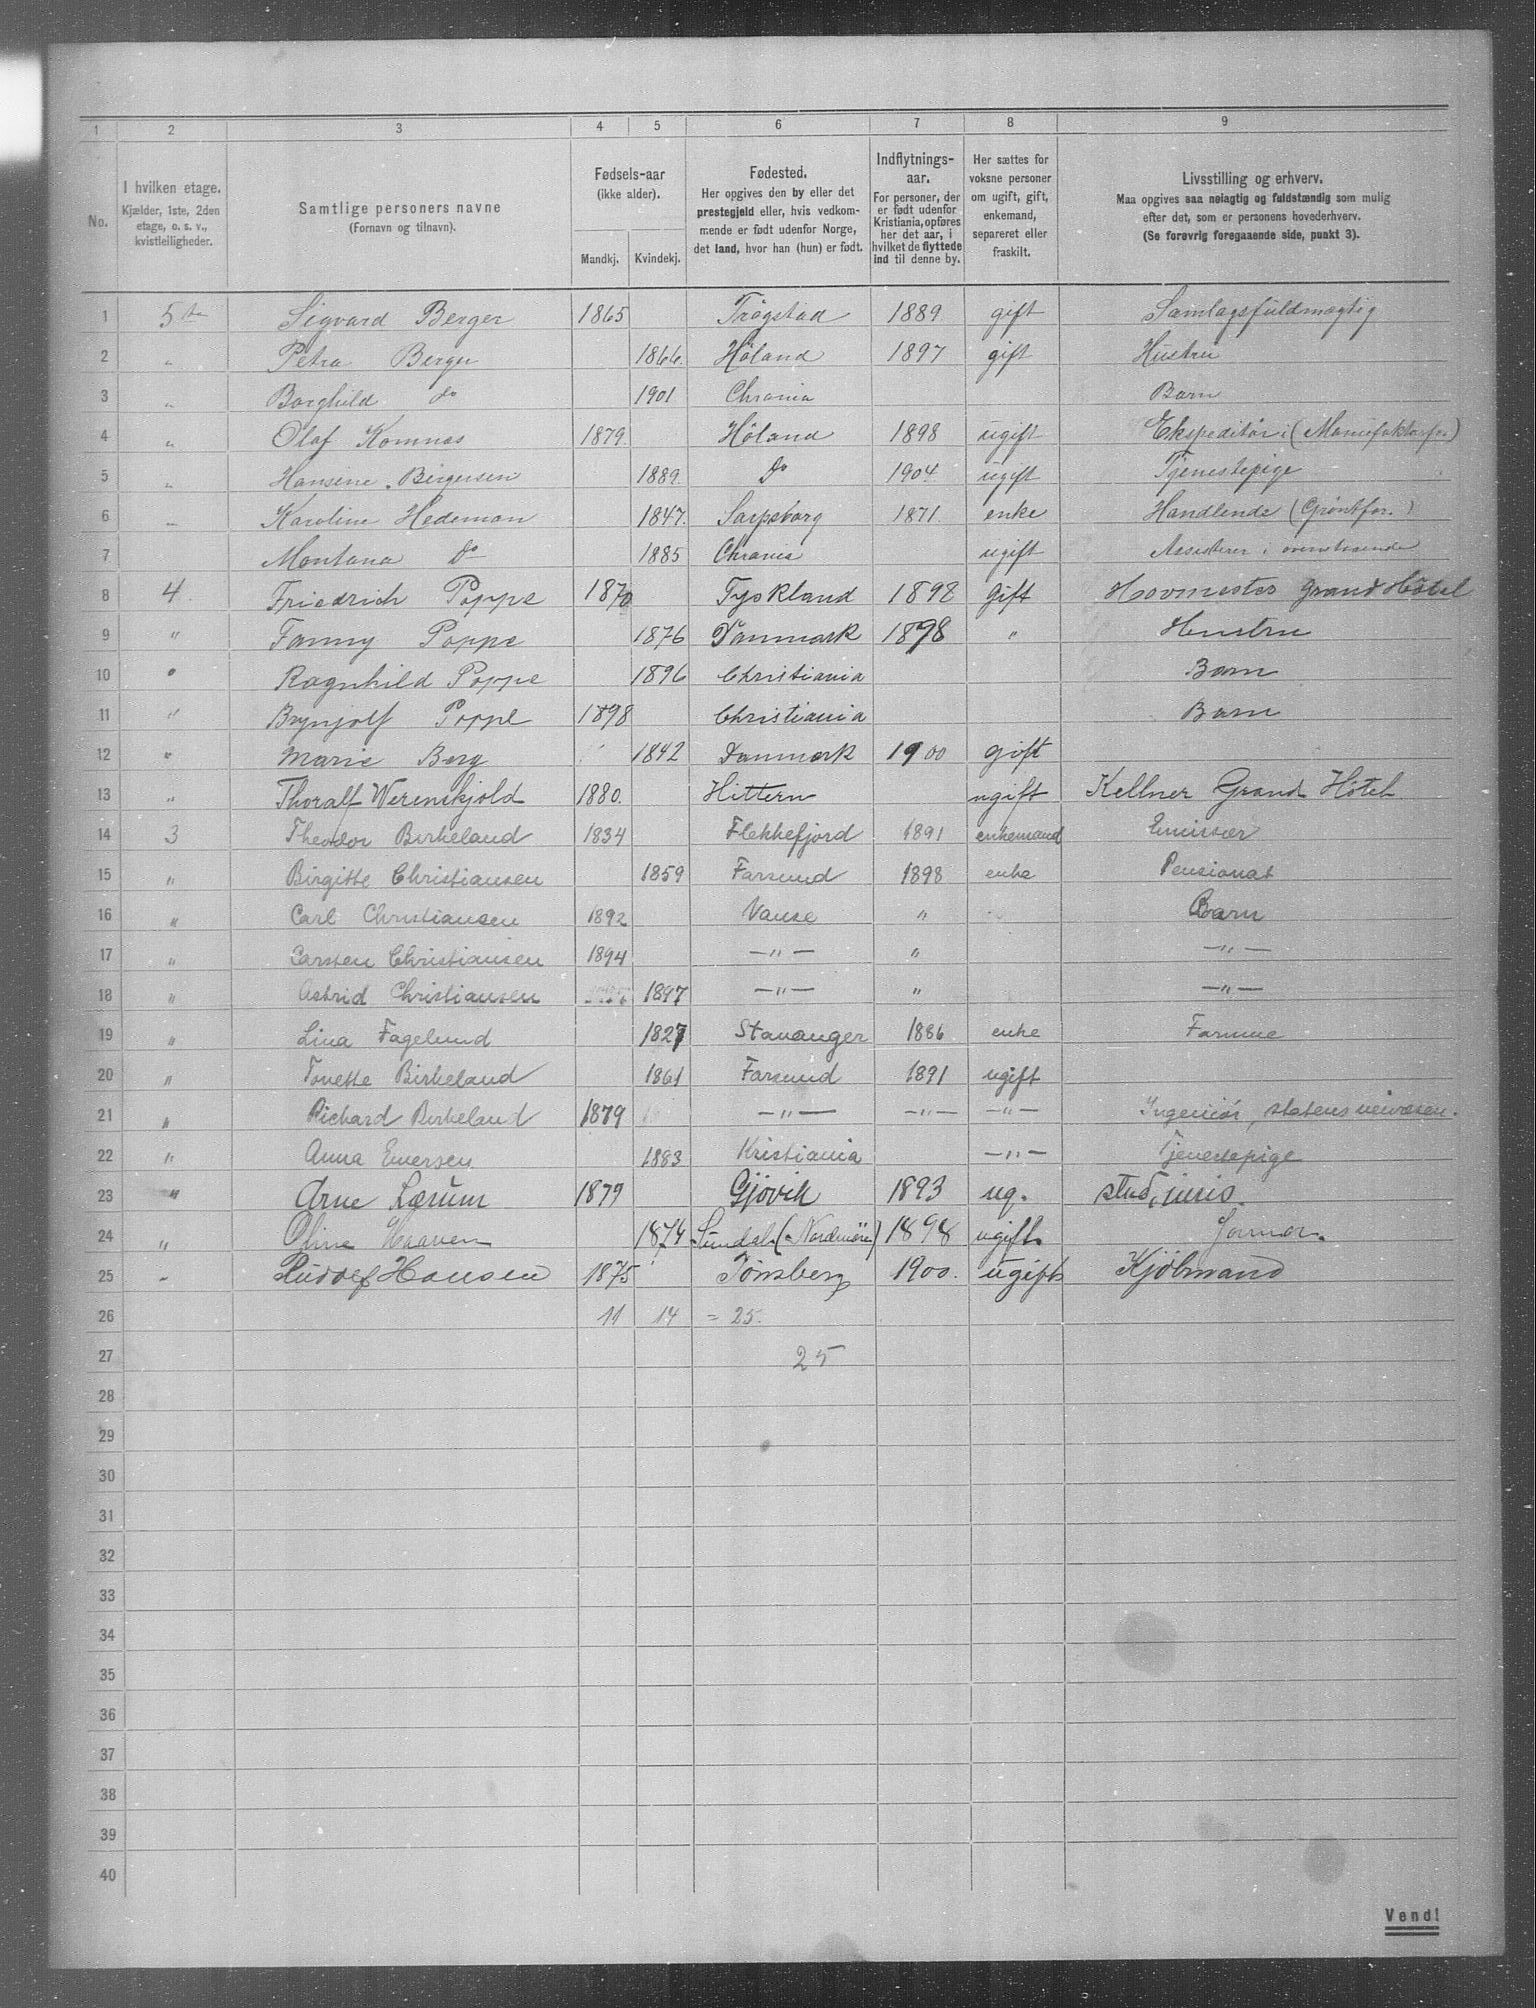 1 2 3 4 5 6 7 8 9
No. I hvilken etage. Kjælder, 1ste, 2den etage, o. s. v., kvistleiligheder. Samtlige personers navne (Fornavn og tilnavn). Fødsels-aar (ikke alder). Mandkj. Kvindekj. Fødested. Her opgives den by eller det prestegjeld eller, hvis vedkommende er født udenfor Norge, det land, hvor han (hun) er født. Indflytnings-aar. For personer, der er født udenfor Kristiania, opføres her det aar, i hvilket de flyttede ind til denne by. Her sættes for voksne personer om ugift, gift, enkemand, separeret eller fraskilt. Livsstilling og erhverv. Maa opgives saa nøiagtig og fuldstændig som mulig efter det, som er personens hovederhverv. (Se forøvrig foregaaende side, punkt 3).
1 5te Sigvard Berger 1865 Trøgstad 1889 gift Samlagsfuldmægtig
2 " Petra Berger 1866. Høland 1897 gift Hustru
3 " Borghild do 1901 Chrania Barn
4 " Olaf Komnæs 1879 Høland 1898 ugift Ekspeditør i (Manufakturfor.)
5 " Hansine Børgersen 1889. Do 1904 ugift Tjenestepige
6 " Karoline Hedeman 1847. Sarpsborg 1871 enke Handlende (Grøntfor.)
7 Montana Do 1885 Chrania ugift Assisterer i ovenstaaende
8 4 Friedrich Poppe 1870 Tyskland 1898 gift Hovmester Grand Hôtel
9 " Fanny Poppe 1876 Danmark 1898 " Hustru
10 " Ragnhild Poppe 1896 Christiania Barn
11 " Brynjolf Poppe 1898 Christiania Barn
12 " Marie Berg 1842 Danmark 1900 gift
13 " Thoralf Werenskjold 1880. Hittern ugift Kellner Grand Hôtel
14 3 Theodor Birkeland 1834 Flekkefjord 1891 enkemand Emissær
15 " Birgitte Christiansen 1859 Farsund 1898 enke Pensionat
16 " Carl Christiansen 1892 Vanse " Barn
17 " Carsten Christiansen 1894 — " — " — " —
18 " Astrid Christiansen 1897 — " — " — " —
19 " Lina Fagelund 1827 Stavanger 1886 enke Farmue
20 " Tonette Birkeland 1861 Farsund 1891 ugift
21 " Richard Birkeland 1879 — " — — " — — " — Ingeniør, statens veivæsen.
22 " Anna Enersen 1883 Kristiania — " — Tjenestepige
23 " Arne Lærum 1879 Gjøvik 1893 ug. stud. juris.
24 " Oline Haaven 1874 Sundal (Nordmøre) 1898 ugift Jormor.
25 " Rudolf Hansen 1875 Tønsberg 1900. ugift Kjøbmand
26 11 14 = 25.
27 25
28
29
30
31
32
33
34
35
36
37
38
39
40
Vend!